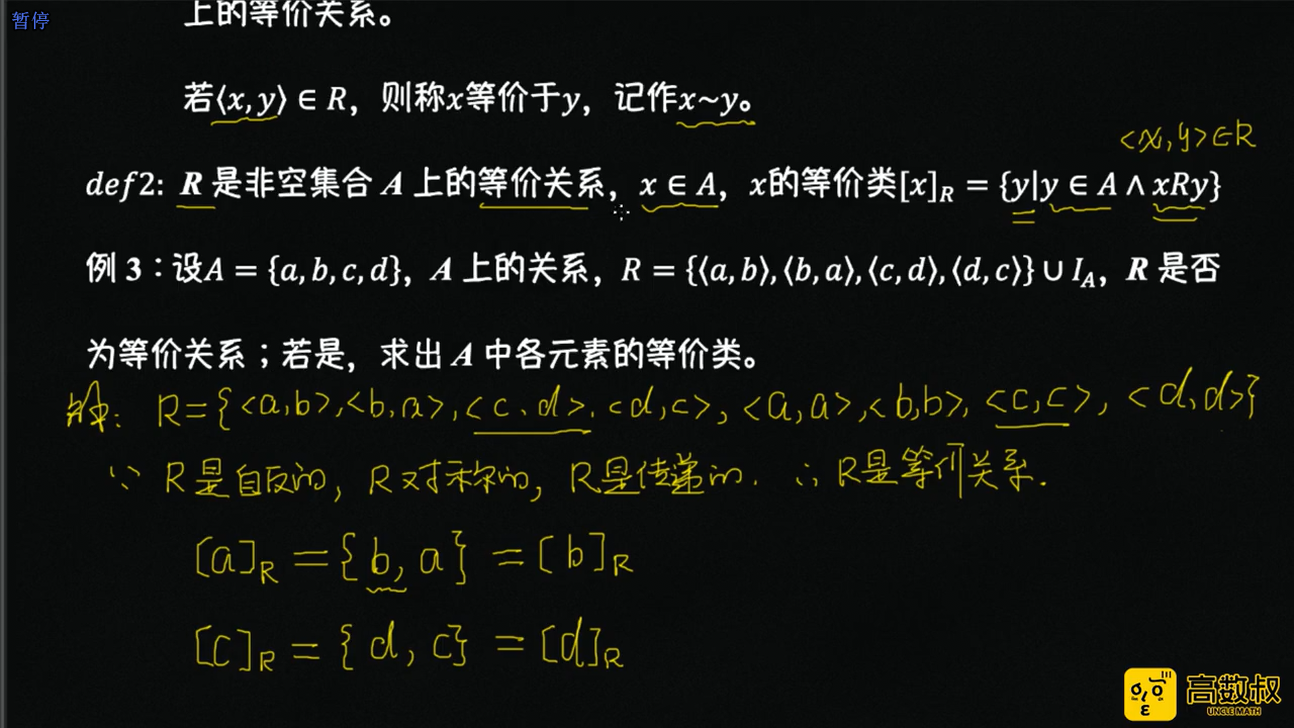 暂停
上的等价关系。
若⟨x, y⟩ ∈ R，则称x等价于y，记作x~y。
<x, y>∈R
def2: R 是非空集合 A 上的等价关系，x ∈ A，x的等价类[x]_R = {y|y ∈ A ∧ xRy}
例 3：设A = {a, b, c, d}，A 上的关系，R = {⟨a, b⟩, ⟨b, a⟩, ⟨c, d⟩, ⟨d, c⟩} ∪ I_A，R 是否
为等价关系；若是，求出 A 中各元素的等价类。
解: R={<a,b>,<b,a>,<c,d>,<d,c>,<a,a>,<b,b>,<c,c>,<d,d>}
∵ R是自反的, R对称的, R是传递的. ∴ R是等价关系.
[a]_R = {b, a} = [b]_R
[c]_R = {d, c} = [d]_R
高数叔
UNCLE MATH